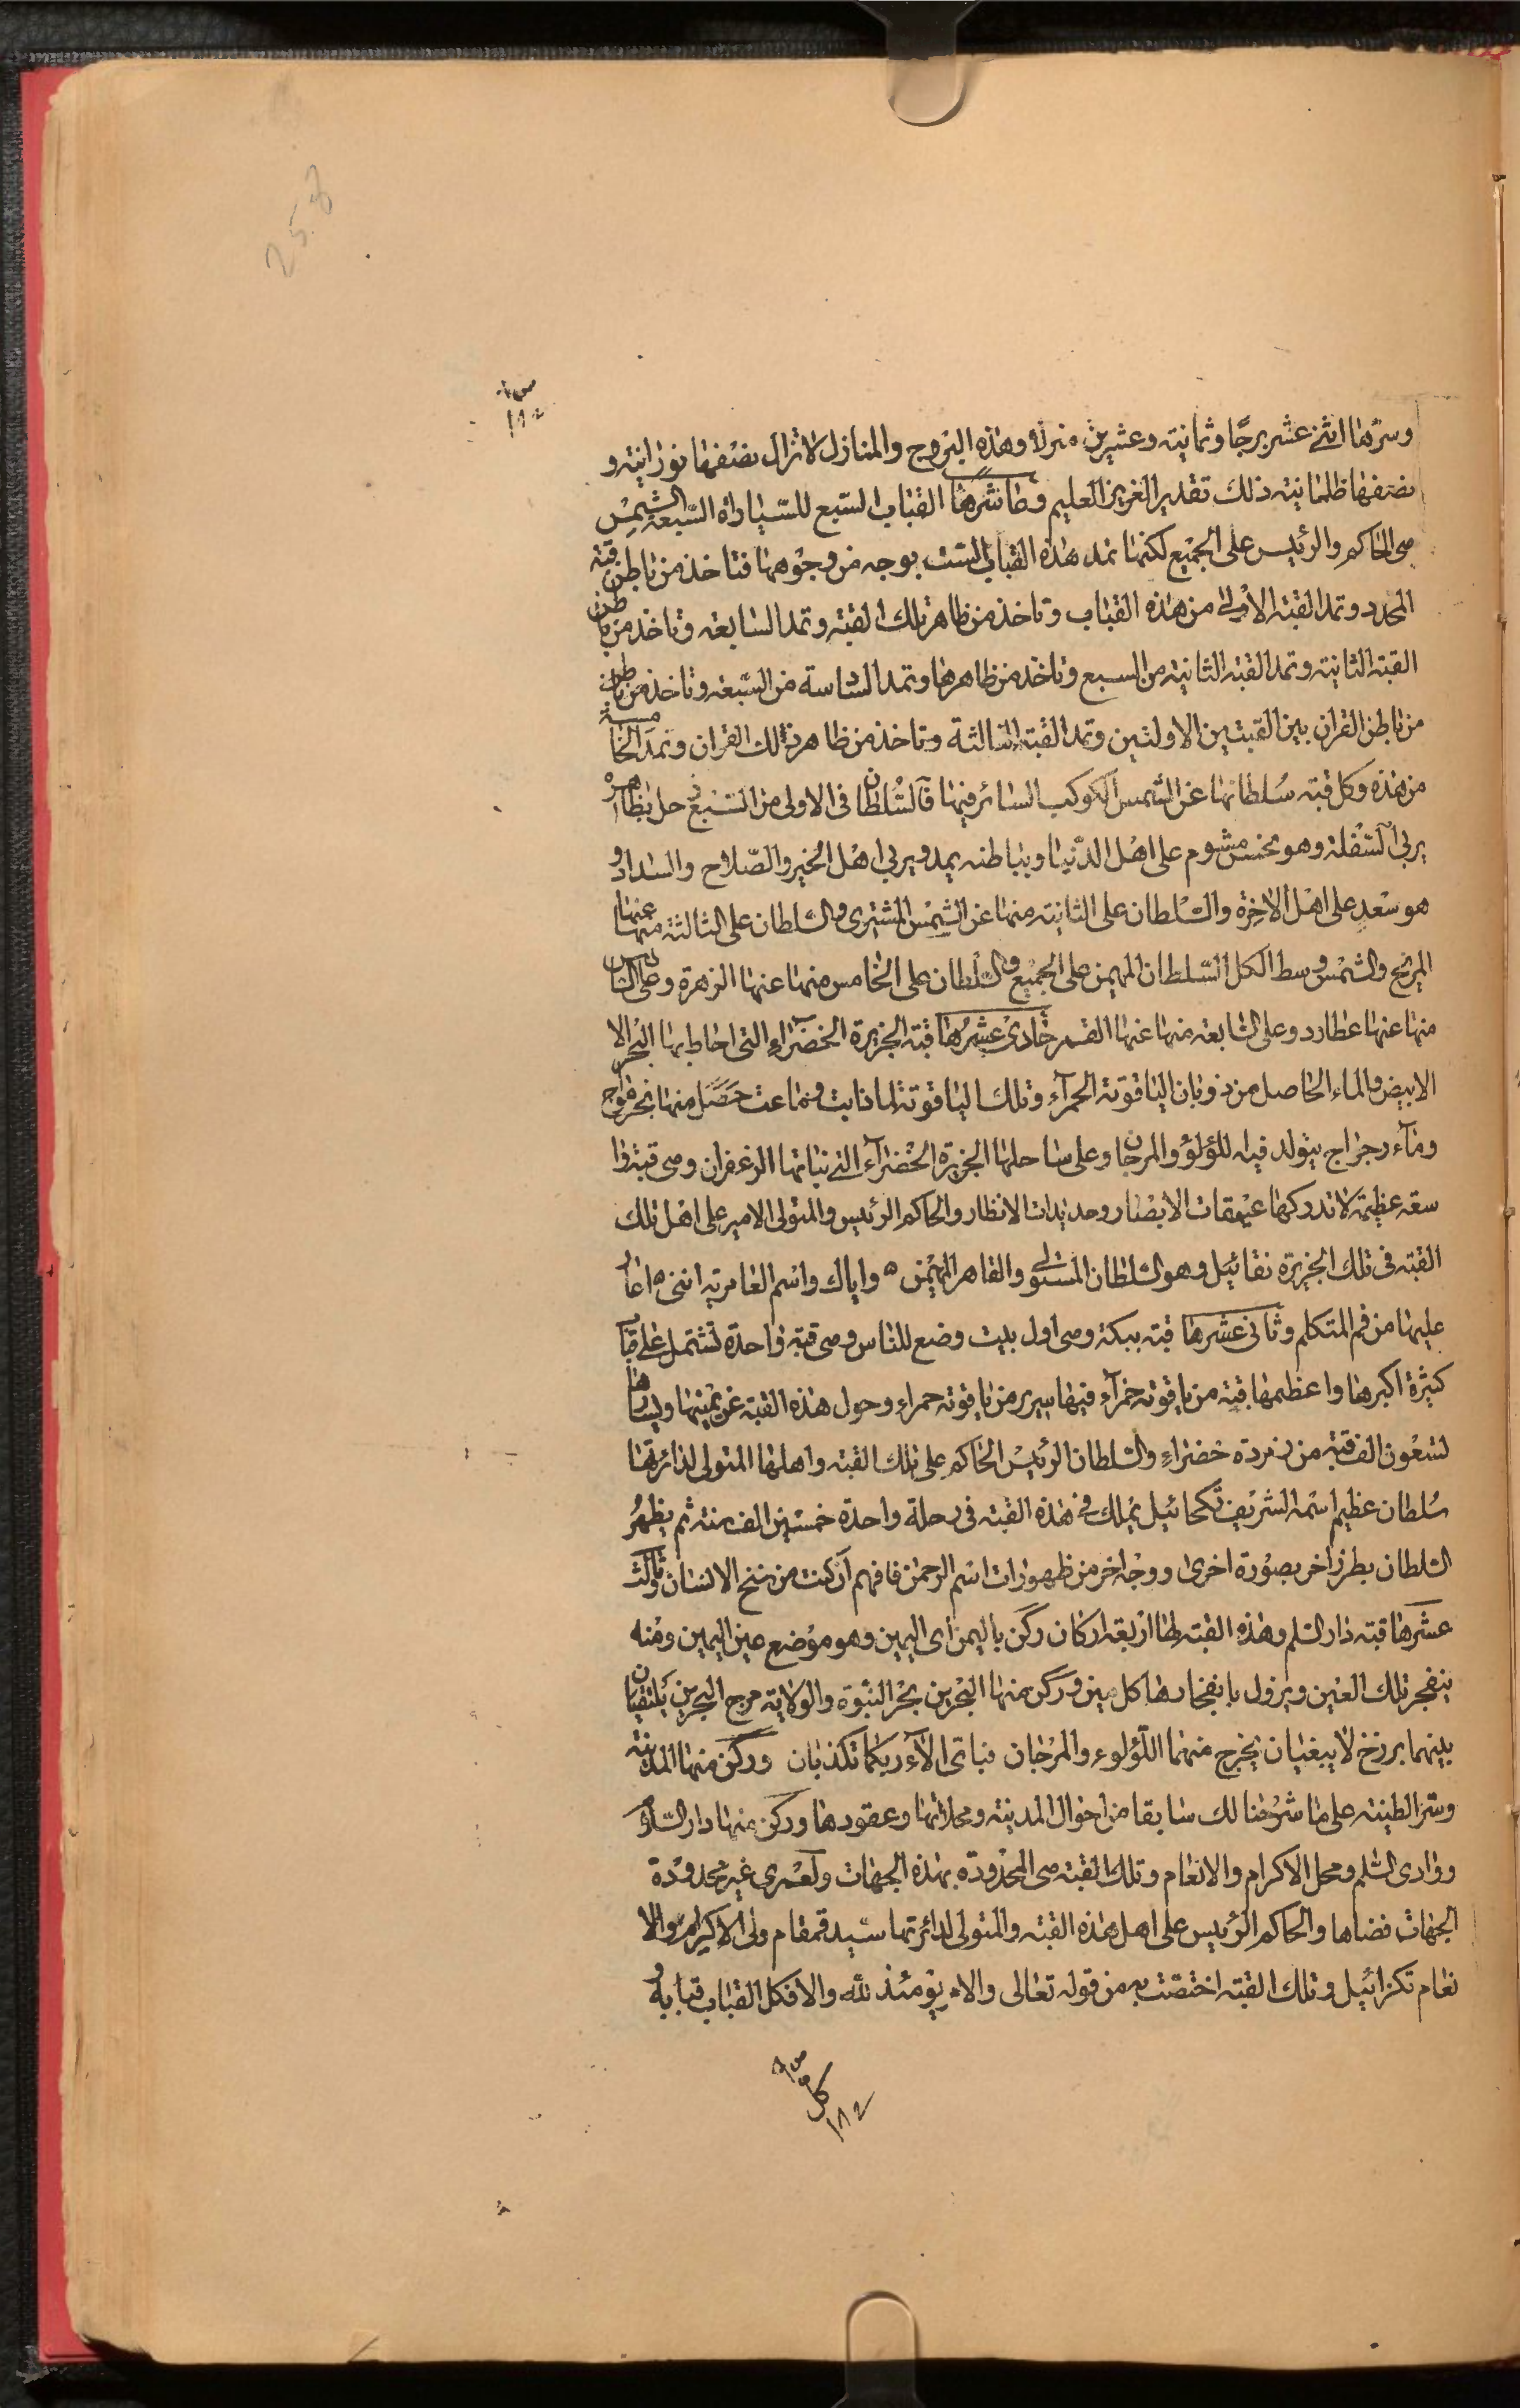 وسرّها اثنى عشر برجًا وثمانية وعشرين منزلا وهذه البروج والمنازل لا تزال نصفها نورانية و
نصفها ظلمانية ذلك تقدير العزيز العليم وعاشرها القباب السبع للسيارة السبعة الشمس
هى الحاكم والرئيس على الجميع لكنها تمد هذه القباب الست بوجه من وجوهها فتاخذ من باطن قبة
المحدد وتمد القبة الاولى من هذه القباب وتاخذ من ظاهر تلك القبة وتمد السابعة وتاخذ من باطن
القبة الثانية وتمد القبة الثانية من السبع وتاخذ من ظاهرها وتمد السادسة من السبعة وتاخذ من باطن
من باطن القران بين القبتين الاولتين وتمد القبة الثالثة وتاخذ من ظاهر ذلك القران وتمد الخامسة
من هذه وكل قبة سلطانها عن الشمس الكوكب السائر فيها فالسلطان فى الاولى من السبع زحل بظاهره
يربى السفلة وهو نحس مشوم على اهل الدنيا وبباطنه يمد ويربى اهل الخير والصلاح والسداد و
هو سعد على اهل الاخرة والسلطان على الثانية منها عن الشمس المشترى والسلطان على الثالثة منها عنها
المريخ والشمس وسط الكل السلطان المهيمن على الجميع والسلطان على الخامس منها عنها الزهرة وعلى السادس
منها عنها عطارد وعلى السابعة منها عنها القمر حادى عشرها قبة الجزيرة الخضراء التى احاط بها البحر الا
الابيض والماء الحاصل من ذوبان الياقوتة الحمراء وتلك الياقوتة لما ذابت وماعت حصل منها بحر مواج
وماء رجراج يتولد فيه اللؤلؤ والمرجان وعلى ساحلها الجزيرة الخضراء التى نباتها الزعفران وهى قبة ذا
سعة عظيمة لا تدركها عيقات الابصار وحديدات الانظار والحاكم الرئيس والمتولى الامير على اهل تلك
القبة فى تلك الجزيرة نقائيل وهو السلطان المستولى والقاهر المهيمن ه واياك واسم العامرية اننى ه اغار
عليها من فم المتكلم وثانى عشرها قبة ببكة وهى اول بيت وضع للناس وهى قبة واحدة تشتمل على قباب
كثيرة اكبرها واعظمها قبة من ياقوتة حمراء فيها سرير من ياقوتة حمراء وحول هذه القبة عن يمينها ويسارها
تسعون الف قبة من زمردة خضراء والسلطان الرئيس الحاكم على تلك القبة واهلها المتولى لدائرتها
سلطان عظيم اسمه الشريف تكحائيل يملك فى هذه القبة فى رحلة واحدة خمسين الف سنة ثم يظهر
السلطان بطرز اخر بصورة اخرى ووجه اخر من ظهورات اسم الرحمن فافهم ان كنت من سنخ الانسان وثالث
عشرها قبة دار السلم وهذه القبة لها اربعة اركان ركن باليمن اى اليمين وهو موضع عين اليمين ومنه
ينفجر تلك العين ويزول بانفجارها كل مين وركن منها البحرين بحر النبوة والولاية مرج البحرين يلتقيان
بينهما برزخ لا يبغيان يخرج منهما اللؤلوء والمرجان فباى الآء ربكما تكذبان وركن منها المدينة
وسر الطينة على ما شرحنا لك سابقا من احوال المدينة ومحلاتها وعقودها وركن منها دار السلام
ووادى السلم ومحل الاكرام والانعام وتلك القبة هى المحدودة بهذه الجهات ولعمرى غير محدودة
الجهات فضاها والحاكم الرئيس على اهل هذه القبة والمتولى لدائرتها سيد قمقام ولى الاكرام والا
نعام تكزائيل وتلك القبة اختصت به من قوله تعالى والامر يومئذ لله والا فكل القباب قبابه و